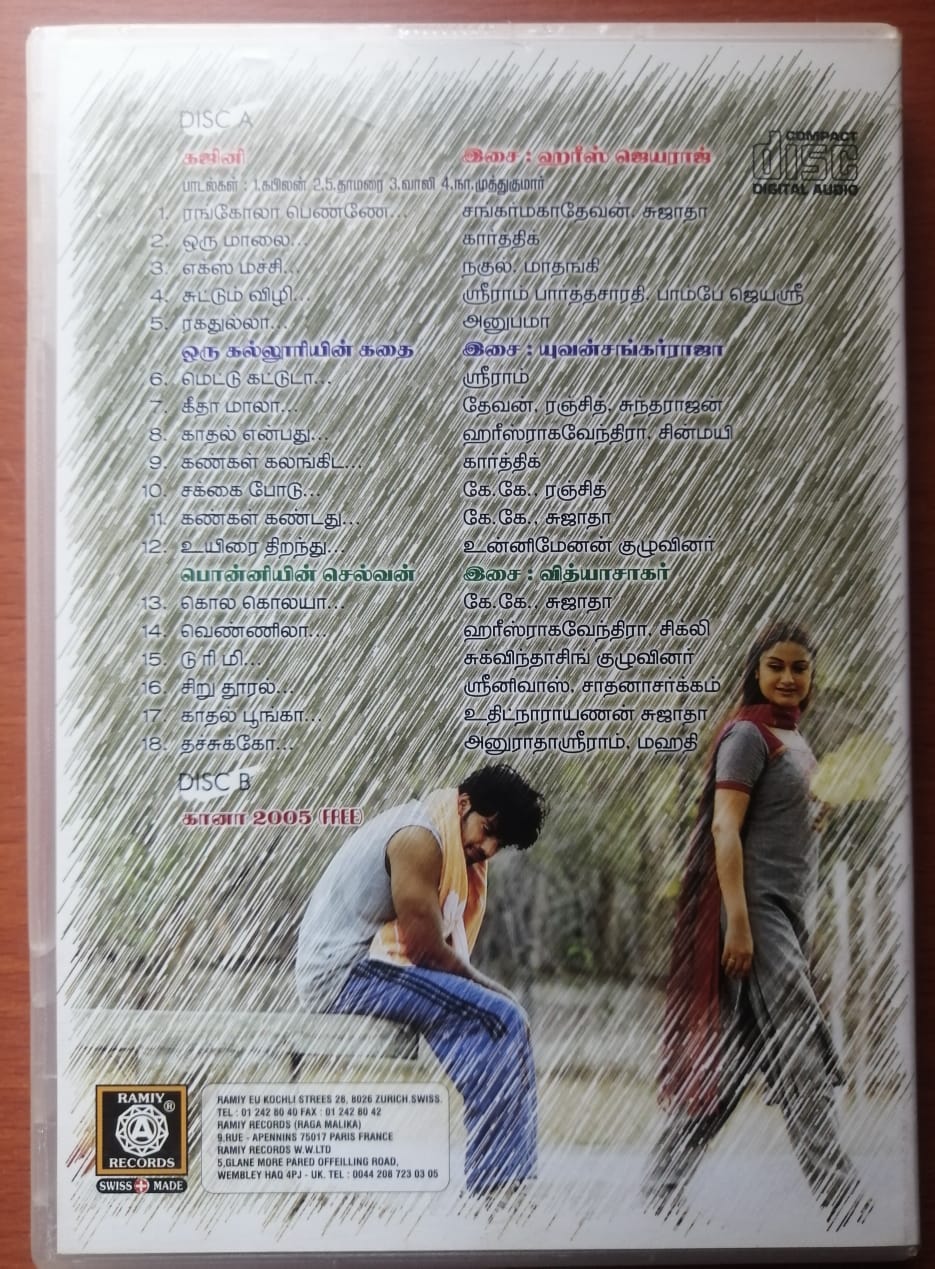 DISC A
கஜினி இசை : ஹரீஸ் ஜெயராஜ்
COMPACT
disc
DIGITAL AUDIO
பாடல்கள் : 1.கபிலன் 2.5.தாமரை 3.வாலி 4.நா.முத்துகுமார்
1. ரங்கோலா பெண்ணே... சங்கர்மகாதேவன், சுஜாதா
2. ஒரு மாலை... கார்த்திக்
3. எக்ஸ் மச்சி... நகுல், மாதங்கி
4. சுட்டும் விழி... ஸ்ரீராம் பார்த்தசாரதி, பாம்பே ஜெயஸ்ரீ
5. ரகதுல்லா... அனுபமா
ஒரு கல்லூரியின் கதை இசை : யுவன்சங்கர்ராஜா
6. மெட்டு கட்டுடா... ஸ்ரீராம்
7. கீதா மாலா... தேவன், ரஞ்சித், சுந்தராஜன்
8. காதல் என்பது... ஹரீஸ்ராகவேந்திரா, சின்மயி
9. கண்கள் கலங்கிட... கார்த்திக்
10. சக்கை போடு... கே.கே., ரஞ்சித்
11. கண்கள் கண்டது... கே.கே., சுஜாதா
12. உயிரை திறந்து... உன்னிமேனன் குழுவினர்
பொன்னியின் செல்வன் இசை : வித்யாசாகர்
13. கொல கொலயா... கே.கே., சுஜாதா
14. வெண்ணிலா... ஹரீஸ்ராகவேந்திரா, சிகலி
15. டு ரி மி... சுக்விந்தாசிங் குழுவினர்
16. சிறு தூரல்... ஸ்ரீனிவாஸ், சாதனாசர்க்கம்
17. காதல் பூங்கா... உதிட்நாராயணன் சுஜாதா
18. தச்சுக்கோ... அனுராதாஸ்ரீராம், மஹதி
DISC B
கானா 2005 (FREE)
RAMIY ®
A
RECORDS
SWISS MADE
RAMIY EU KOCHLI STREES 28, 8026 ZURICH.SWISS.
TEL : 01 242 80 40 FAX : 01 242 80 42
RAMIY RECORDS (RAGA MALIKA)
9,RUE - APENNINS 75017 PARIS FRANCE
RAMIY RECORDS W.W.LTD
5,GLANE MORE PARED OFFEILLING ROAD,
WEMBLEY HAQ 4PJ - UK. TEL : 0044 208 723 03 05